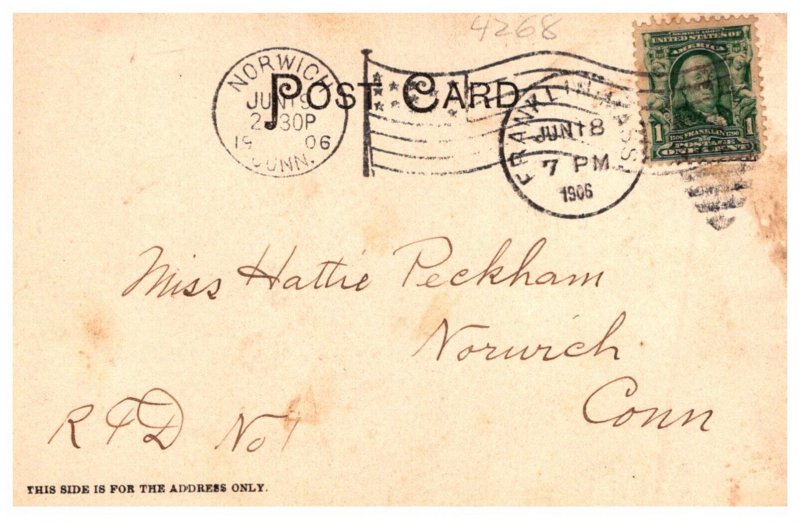 4268
POST CARD
NORWICH
JUN 19
2 30P
19 06
CONN.
FRANKLIN MASS.
JUN 18
7 PM
1906
SERIES 1902
UNITED STATES OF
AMERICA
1
FRANKLIN
POSTAGE
ONE CENT
Miss Hattie Peckham
Norwich
Conn
RFD No 1
THIS SIDE IS FOR THE ADDRESS ONLY.